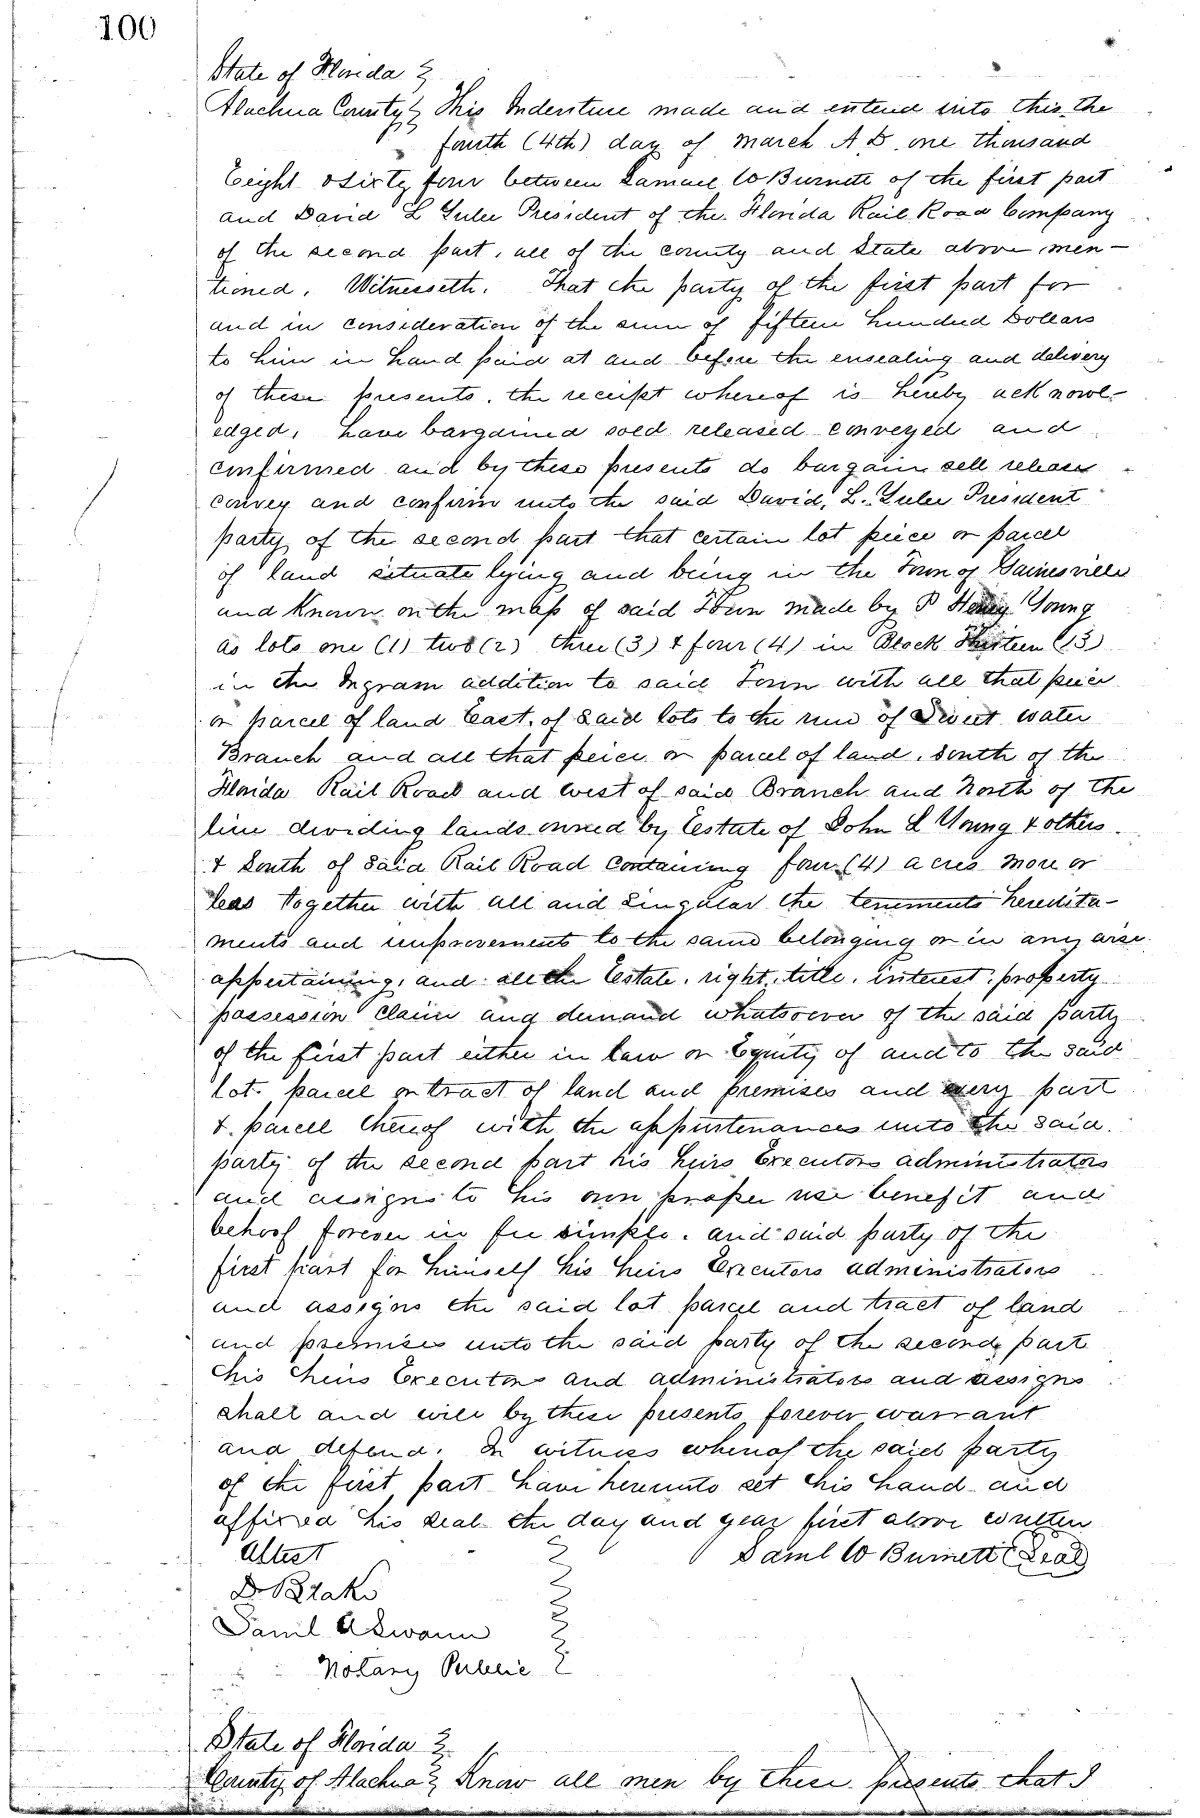 100
State of Florida }
Alachua County } This Indenture made and entend into this the
fourth (4th) day of March A.D. one thousand
Eight & sixty four between Samuel W Burnett of the first part
and David L Yulee President of the Florida Rail Road Company
of the second part, all of the county and State above men-
tioned. Witnesseth. That the party of the first part for
and in consideration of the sum of fifteen hundred Dollars
to him in hand paid at and before the ensealing and delivery
of these presents, the receipt whereof is hereby acknowl-
edged, have bargained sold released conveyed and
confirmed and by these presents do bargain sell release
convey and confirm unto the said David, L. Yulee President
party of the second part that certain lot peice or parcel
of land situate lying and being in the Town of Gainesville
and known on the map of said Town made by P Henry Young
as lots one (1) two (2) three (3) & four (4) in Block Thirteen (13)
in the Ingram addition to said Town with all that peice
or parcel of land East, of said lots to the run of Sweet water
Branch and all that peice or parcel of land, South of the
Florida Rail Road and west of said Branch and North of the
line dividing lands owned by Estate of John L Young & others
& South of said Rail Road containing four (4) acres more or
less together with all and singular the tenements heredita-
ments and improvements to the same belonging or in any wise
appertaining, and all the Estate, right, title, interest, property
possession claim and demand whatsoever of the said party
of the first part either in law or Equity of and to the said
lot. parcel or tract of land and premises and every part
& parcel thereof with the appurtenances unto the said
party of the second part his heirs Executors administrators
and assigns to his own proper use benefit and
behoof forever in fee simple. and said party of the
first part for himself his heirs Executors administrators
and assigns the said lot parcel and tract of land
and premises unto the said party of the second part
his heirs Executors and administrators and assigns
shall and will by these presents forever warrant
and defend. In witness whereof the said party
of the first part have hereunto set his hand and
affixed his seal the day and year first above written
Attest }
Saml W Burnett (Seal)
Saml A Swann
Notary Public
State of Florida }
County of Alachua } Know all men by these presents that I